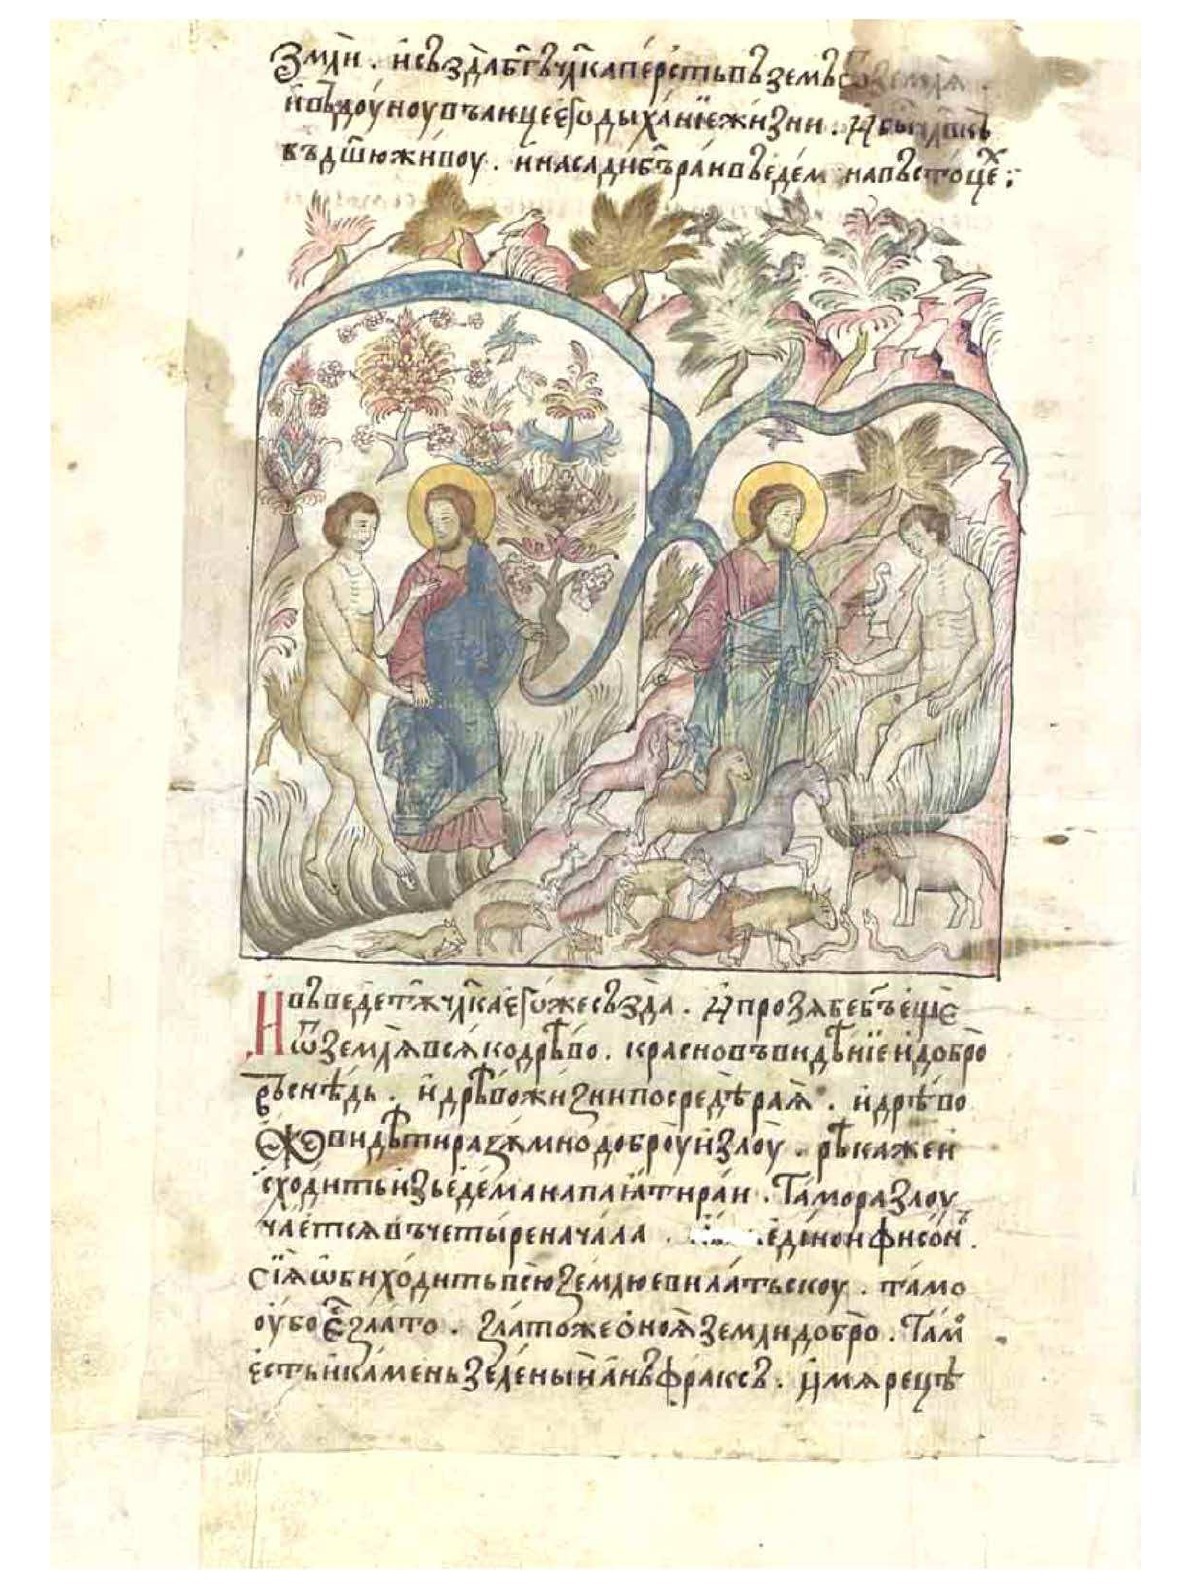 земли . и созда бг҃ъ чл҃ка персть въземъ ѿ земля .
и въдоуноу въ лице его дыханїе жизни . И бысть чл҃вкъ
въ дш҃ю живоу . и насади бг҃ъ раи въ едем на въстоцех :
И въведе тꙋ чл҃ка егоже създа . И прозябе бг҃ъ еще
ѿ земля всяко дрѣво . красно въ видѣнїе и добро
въ снѣдь . и дрѣво жизни посредѣ рая . и дрѣво
еже видѣти разꙋмно доброу и злоу . рѣка же и
сходить изь едема напаяти раи . Тамо разлоу
чается въ четыре начала . едїнои фисонъ .
сїя ѡбиходить всю землю евилатьскоу . тамо
оубо е҃ злато . злато же оноя земли добро . Там
есть и камень зеленыи анъфраксъ . И мя рецѣ